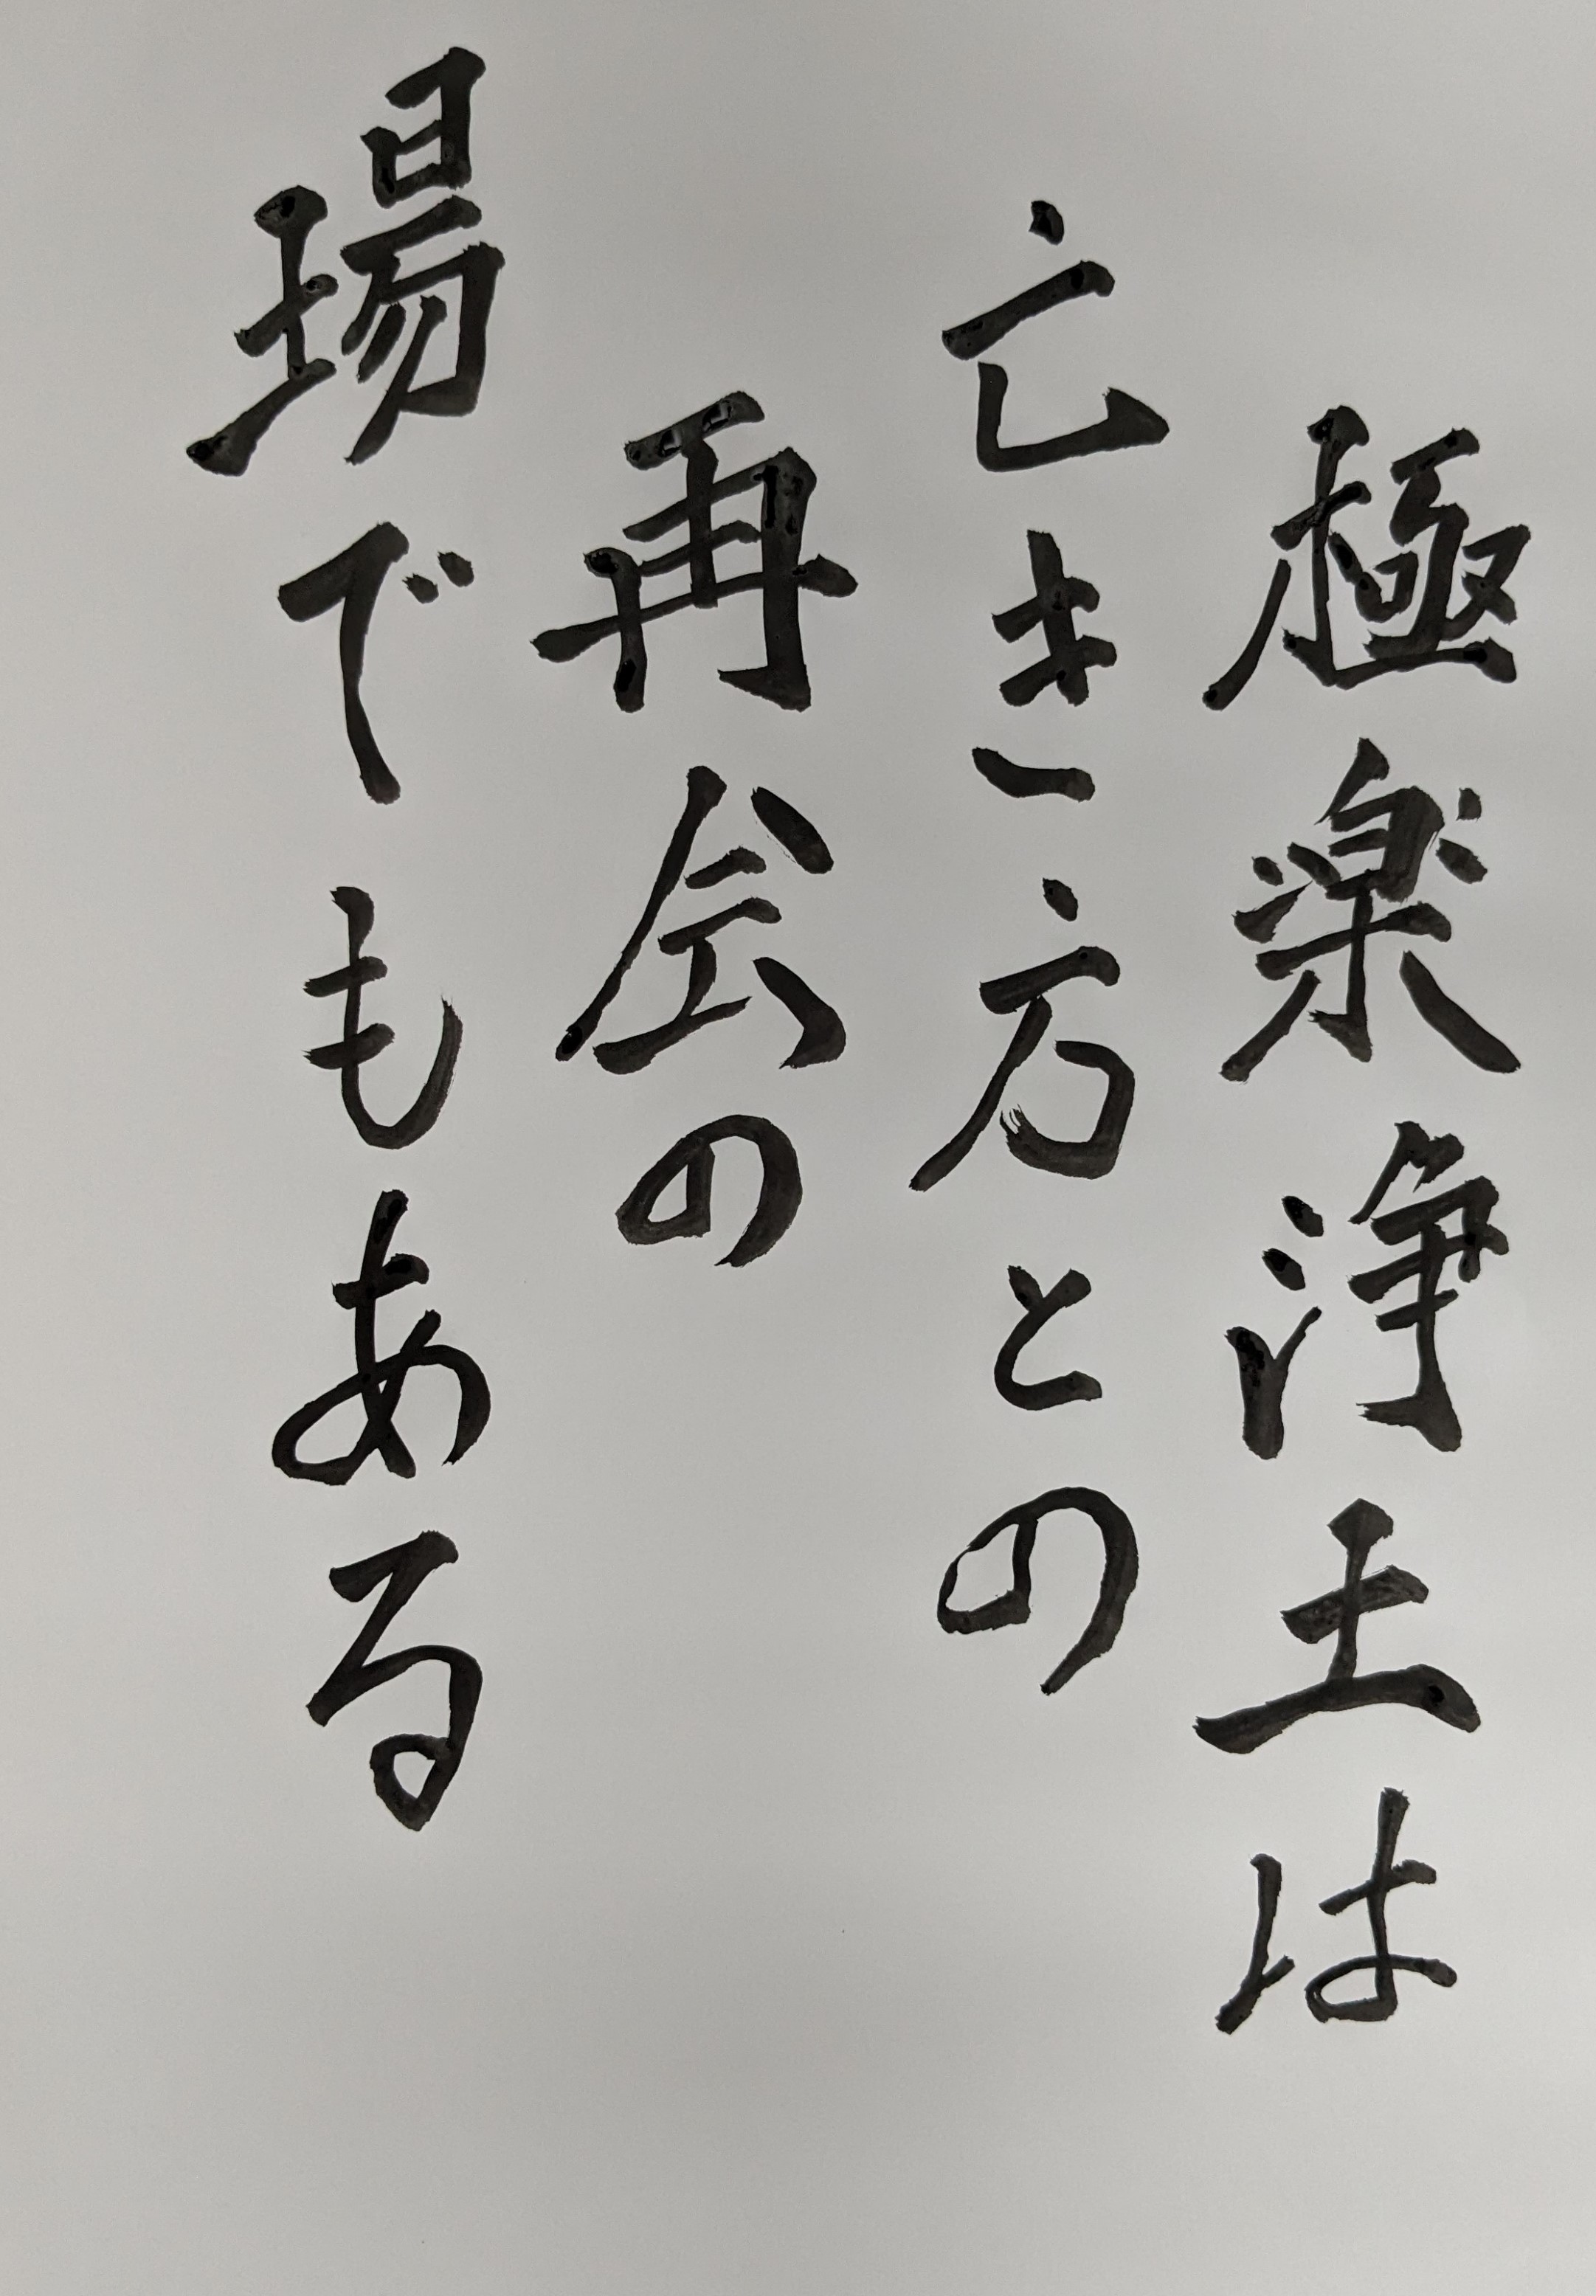 極楽浄土は
亡き方との
再会の
場でもある